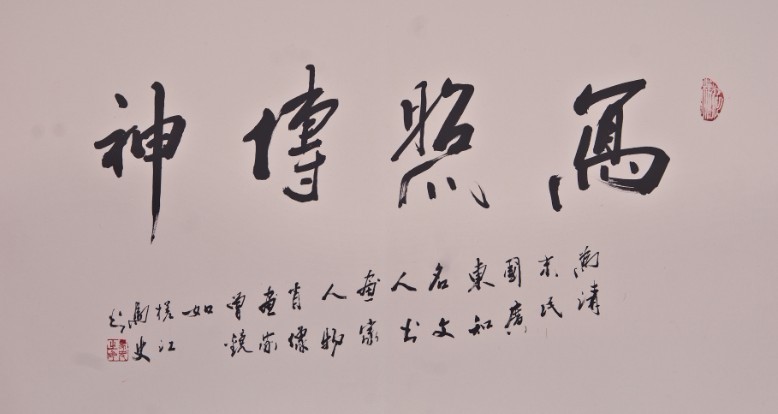 寫照傳神
為清
末民
國廣
東知
名文
人書
畫家
人物
肖像
畫家
曾鏡
如
江
史